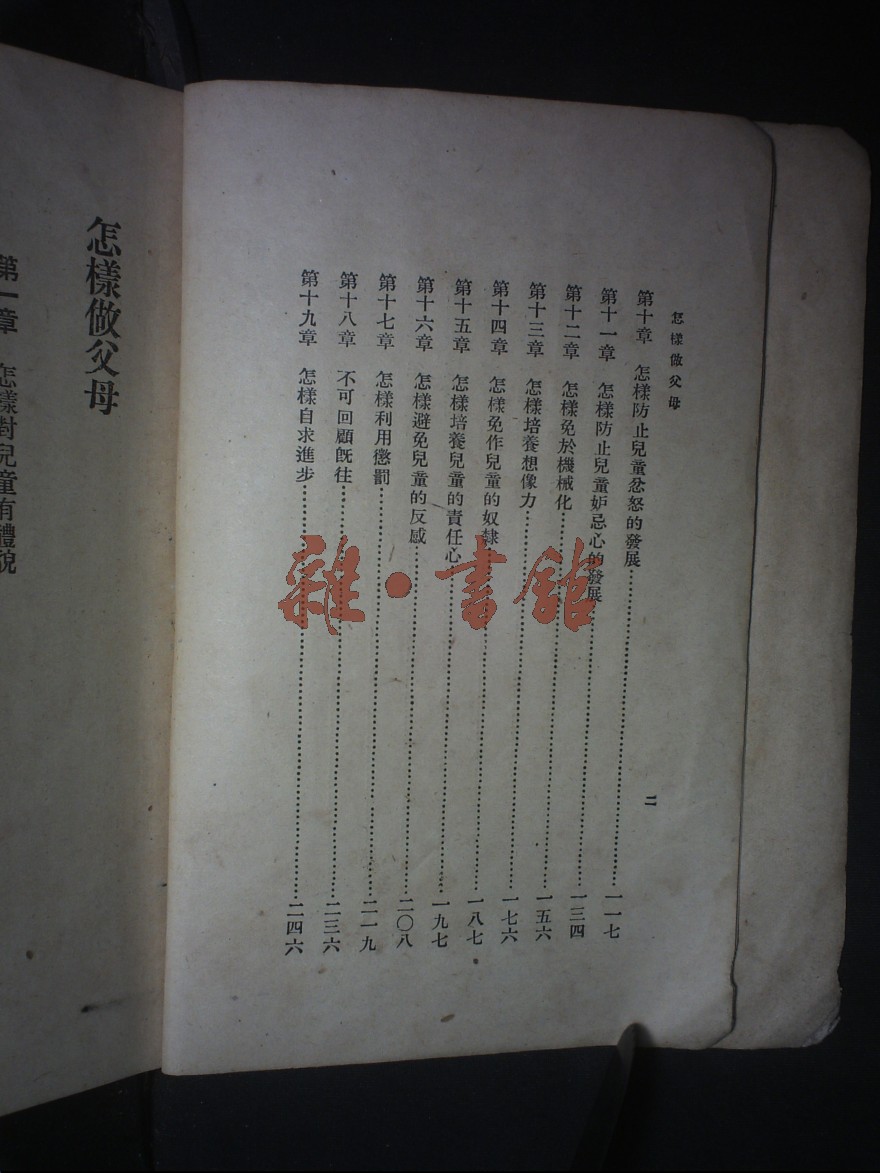 怎樣做父母
二
第十章 怎樣防止兒童忿怒的發展……一一七
第十一章 怎樣防止兒童妒忌心的發展……一三四
第十二章 怎樣免於機械化……一五六
第十三章 怎樣培養想像力……一七六
第十四章 怎樣免作兒童的奴隸……一八七
第十五章 怎樣培養兒童的責任心……一九七
第十六章 怎樣避免兒童的反感……二〇八
第十七章 怎樣利用懲罰……二一九
第十八章 不可回顧旣往……二三六
第十九章 怎樣自求進步……二四六
怎樣做父母
第一章 怎樣對兒童有禮貌
雜·書館